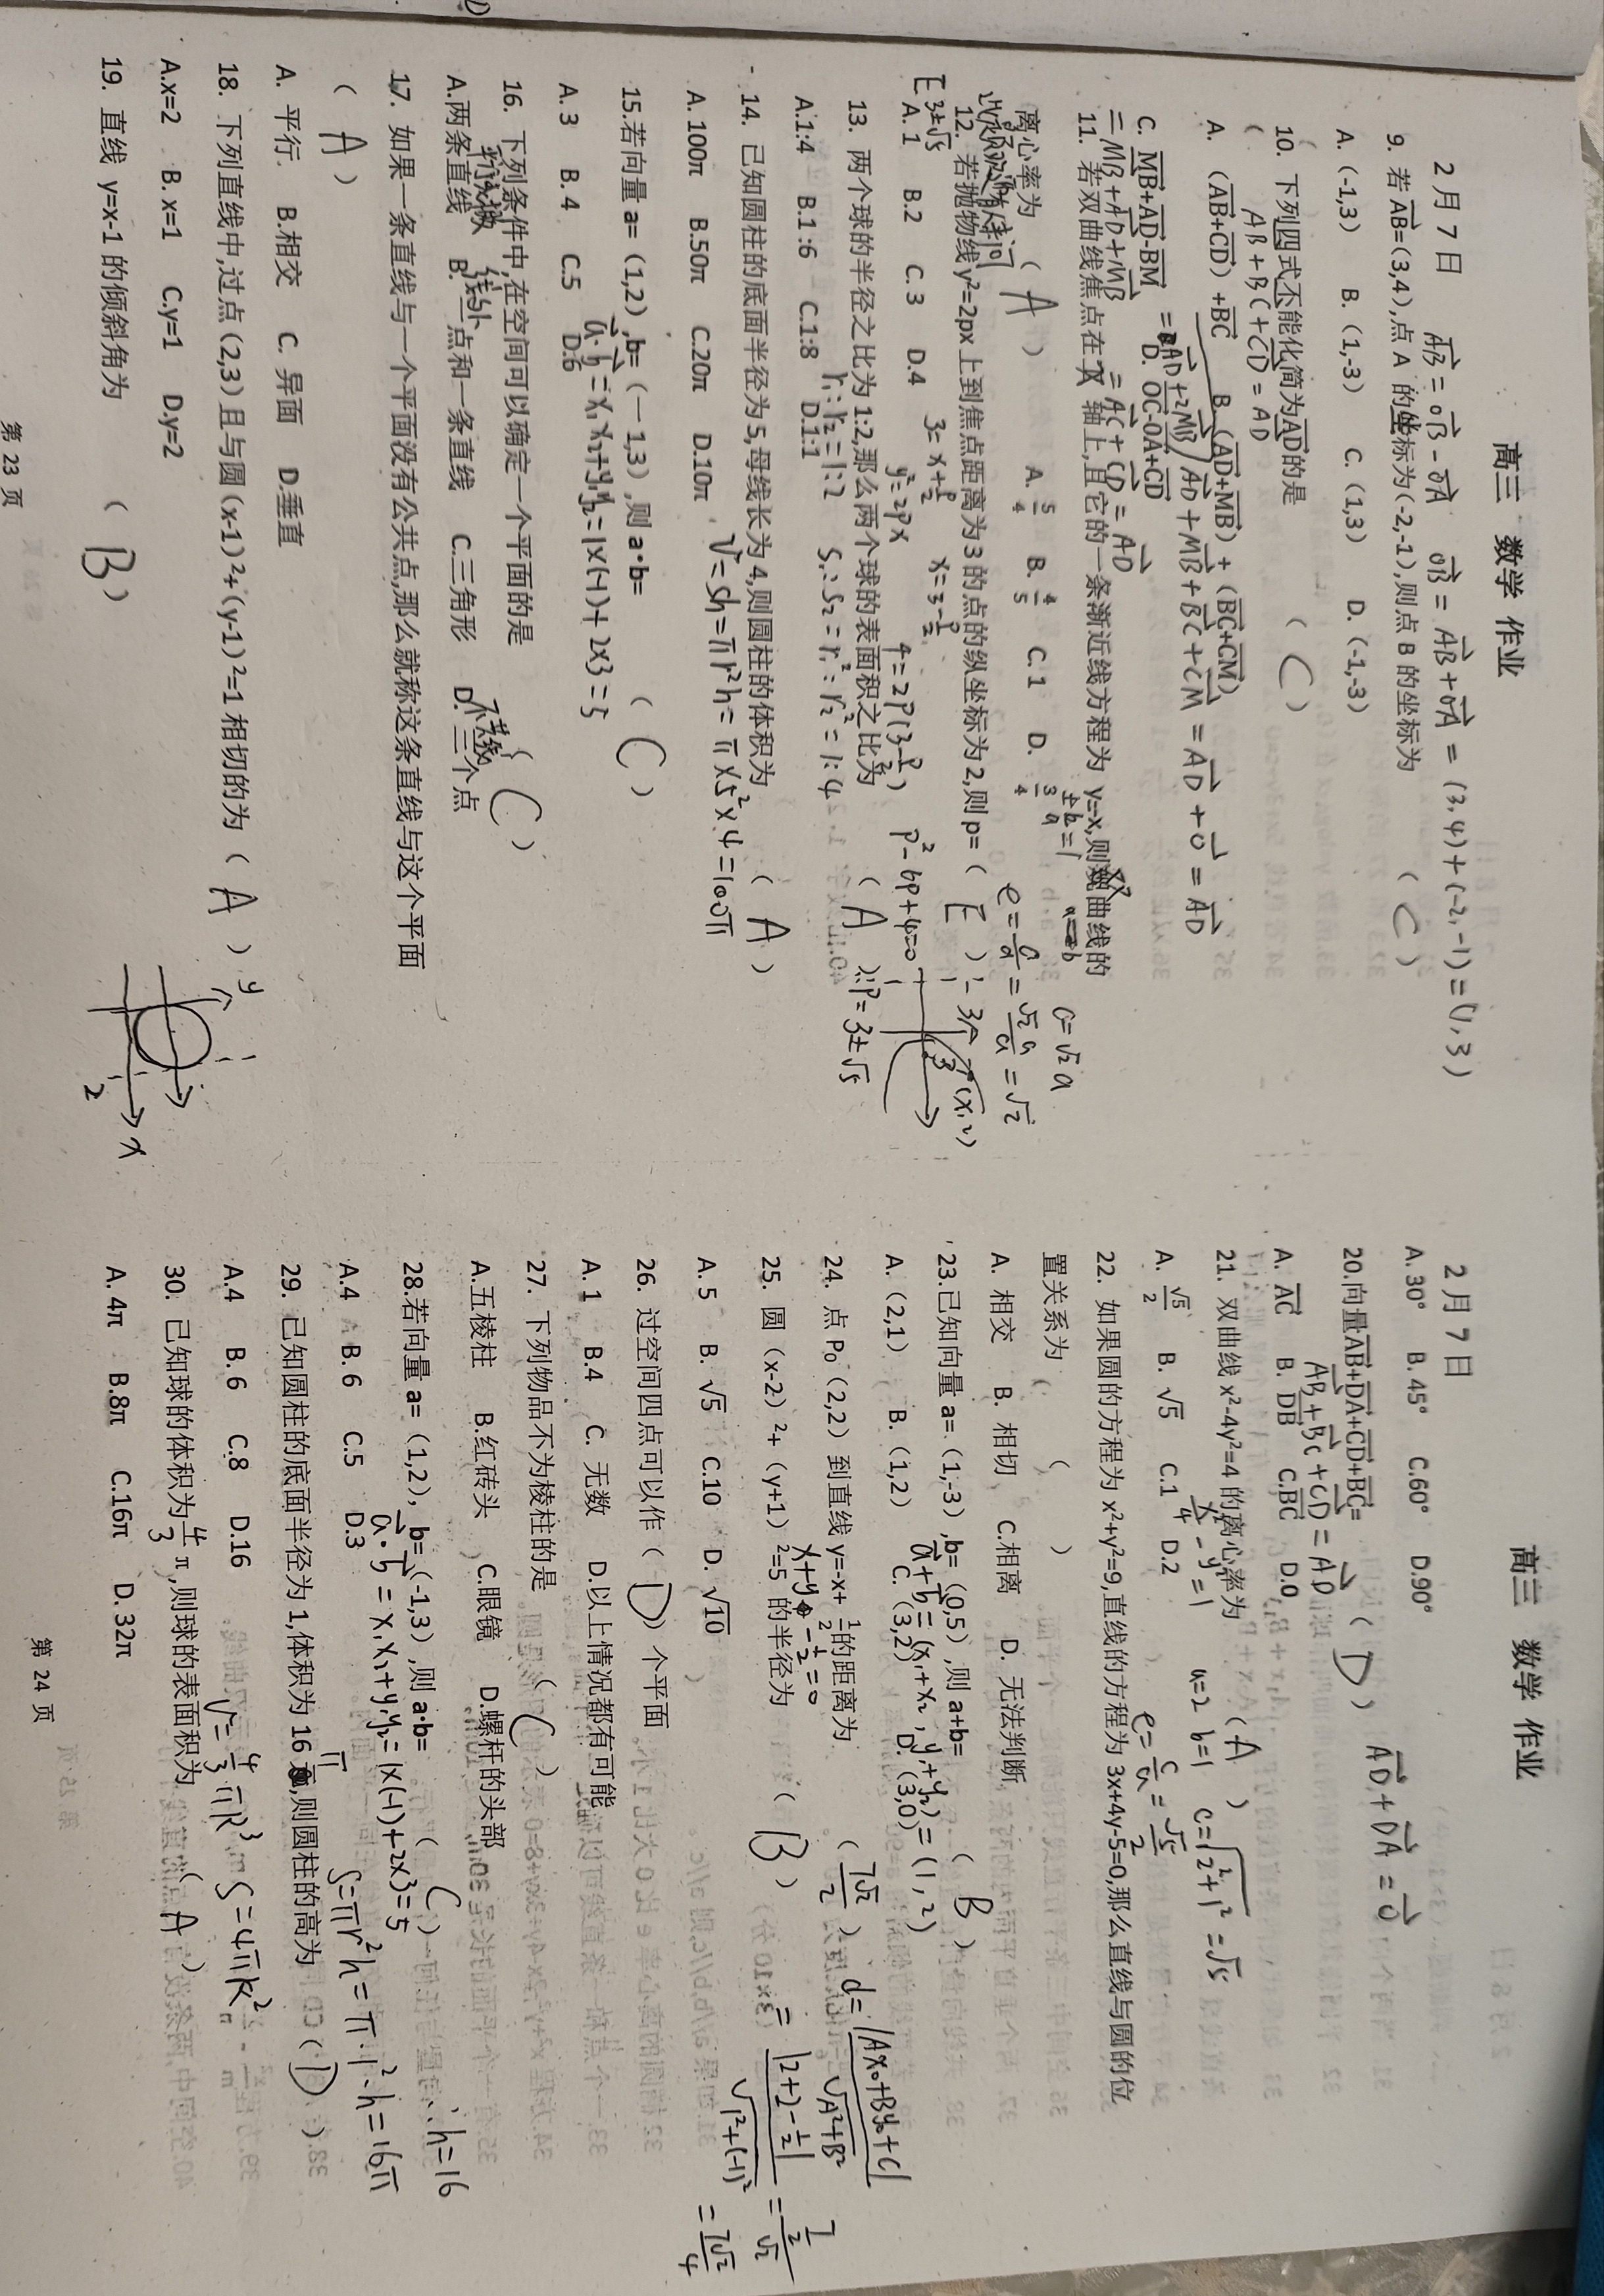 高三 数学 作业
2月7日
9. 若AB=(3,4),点 A 的坐标为(-2,-1),则点 B 的坐标为 ( C )
AB = OB - OA OB = AB + OA = (3,4)+(-2,-1)=(1,3)
A. (-1,3) B. (1,-3) C. (1,3) D. (-1,-3)
10. 下列四式不能化简为AD的是 ( C )
AB+BC+CD=AD
A. (AB+CD)+BC B.(AD+MB)+(BC+CM)
AD+MB+BC+CM=AD+0=AD
C. MB+AD-BM D. OC-OA+CD
=MB+AD+MB =AD+2MB
=AC+CD=AD
11. 若双曲线焦点在 X 轴上,且它的一条渐近线方程为 y=x,则双曲线的
离心率为 ( A ) A. 5/4 B. 4/5 C.1 D. 3/4
b/a=1 a=b c=√2a
e=c/a=√2a/a=√2
12. 若抛物线y²=2px 上到焦点距离为3 的点的纵坐标为 2,则 p= ( E )
A. 1 B.2 C. 3 D.4
E 3±√5
3=x+p/2 x=3-p/2
y²=2px 4=2p(3-p/2) p²-6p+4=0 ∴p=3±√5
(x,2)
13. 两个球的半径之比为 1:2,那么两个球的表面积之比为 ( A )
A.1:4 B.1:6 C.1:8 D.1:1
r₁:r₂=1:2 S₁:S₂=r₁²:r₂²=1:4
14. 已知圆柱的底面半径为 5,母线长为 4,则圆柱的体积为 ( A )
A. 100π B.50π C.20π D.10π
V=Sh=πr²h=π×5²×4=100π
15.若向量 a=(1,2),b=(-1,3),则 a·b= ( C )
A. 3 B. 4 C.5 D.6
a·b=x₁x₂+y₁y₂=1×(-1)+2×3=5
16. 下列条件中,在空间可以确定一个平面的是 ( C )
A.两条直线 B.一点和一条直线 C.三角形 D.三个点
不共线
17. 如果一条直线与一个平面没有公共点,那么就称这条直线与这个平面
( A )
A. 平行 B.相交 C. 异面 D.垂直
18. 下列直线中,过点(2,3)且与圆(x-1)²+(y-1)²=1 相切的为 ( A )
A.x=2 B. x=1 C.y=1 D.y=2
y
x
2
19. 直线 y=x-1 的倾斜角为 ( B )
第 23 页
高三 数学 作业
2月7日
A. 30° B. 45° C.60° D.90°
20.向量AB+DA+CD+BC= ( D )
AB+BC+CD=AD AD+DA=0
A. AC B. DB C.BC D.0
21. 双曲线 x²-4y²=4 的离心率为 ( A )
x²/4-y²=1 a=2 b=1 c=√2²+1²=√5
A. √5/2 B. √5 C.1 D.2
e=c/a=√5/2
22. 如果圆的方程为 x²+y²=9,直线的方程为 3x+4y-5=0,那么直线与圆的位
置关系为 ( )
A. 相交 B. 相切 C.相离 D. 无法判断
23.已知向量 a=(1,-3),b=(0,5),则 a+b= ( B )
a+b=(x₁+x₂,y₁+y₂)=(1,2)
A. (2,1) B. (1,2) C. (3,2) D. (3,0)
24. 点 P₀(2,2)到直线 y=-x+1/2的距离为 ( 7√2/2 )
x+y-1/2=0
d=|Ax₀+By₀+C|/√A²+B²
=|2+2-1/2|/√1²+(-1)²=7/2/√2
=7√2/4
25. 圆(x-2)²+(y+1)²=5 的半径为 ( B )
A. 5 B. √5 C.10 D. √10
26. 过空间四点可以作( D )个平面
A. 1 B.4 C. 无数 D.以上情况都有可能
27. 下列物品不为棱柱的是 ( C )
A.五棱柱 B.红砖头 C.眼镜 D.螺杆的头部
28.若向量 a=(1,2),b=(-1,3),则 a·b= ( C )
a·b=x₁x₂+y₁y₂=1×(-1)+2×3=5
A.4 B. 6 C.5 D.3
29. 已知圆柱的底面半径为 1,体积为 16π,则圆柱的高为 ( D )
S=πr²h=π·1²·h=16π ∴h=16
A.4 B. 6 C.8 D.16
30. 已知球的体积为4/3π,则球的表面积为 ( A )
V=4/3πR³ S=4πR²
A. 4π B.8π C.16π D. 32π
第 24 页